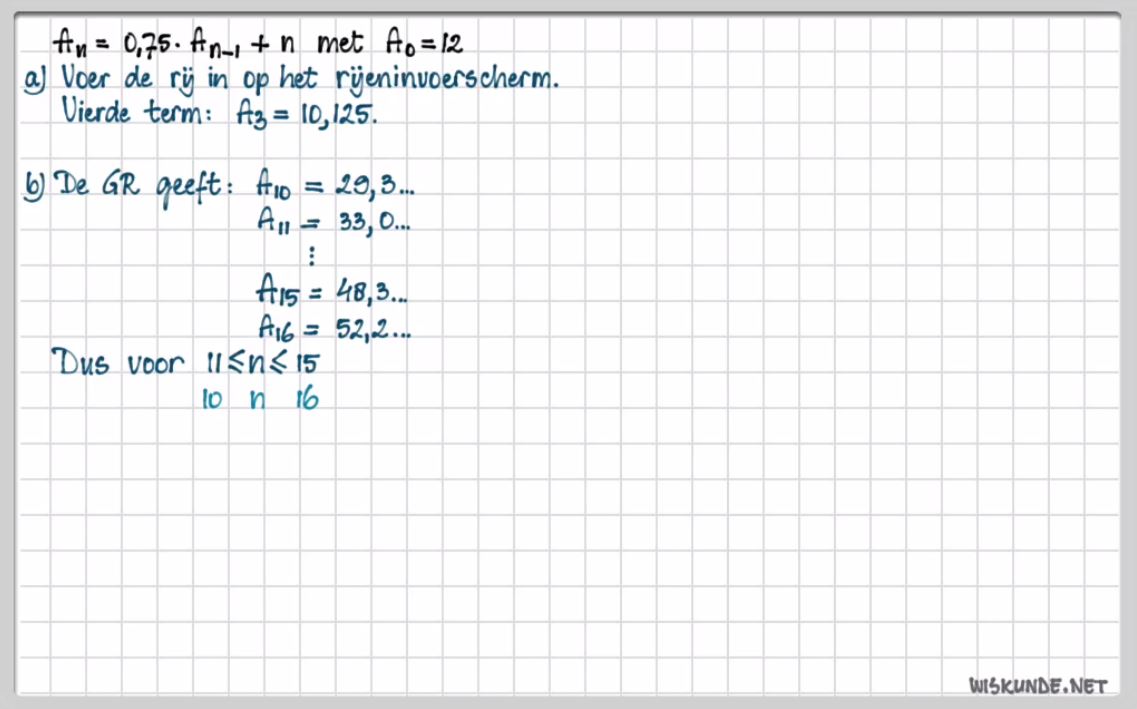 Aₙ = 0,75 · Aₙ₋₁ + n met A₀ = 12
a) Voer de rij in op het rijeninvoerscherm.
Vierde term: A₃ = 10,125.
b) De GR geeft: A₁₀ = 29,3...
A₁₁ = 33,0...
⋮
A₁₅ = 48,3...
A₁₆ = 52,2...
Dus voor 11 ≤ n ≤ 15
10 n 16
WISKUNDE.NET